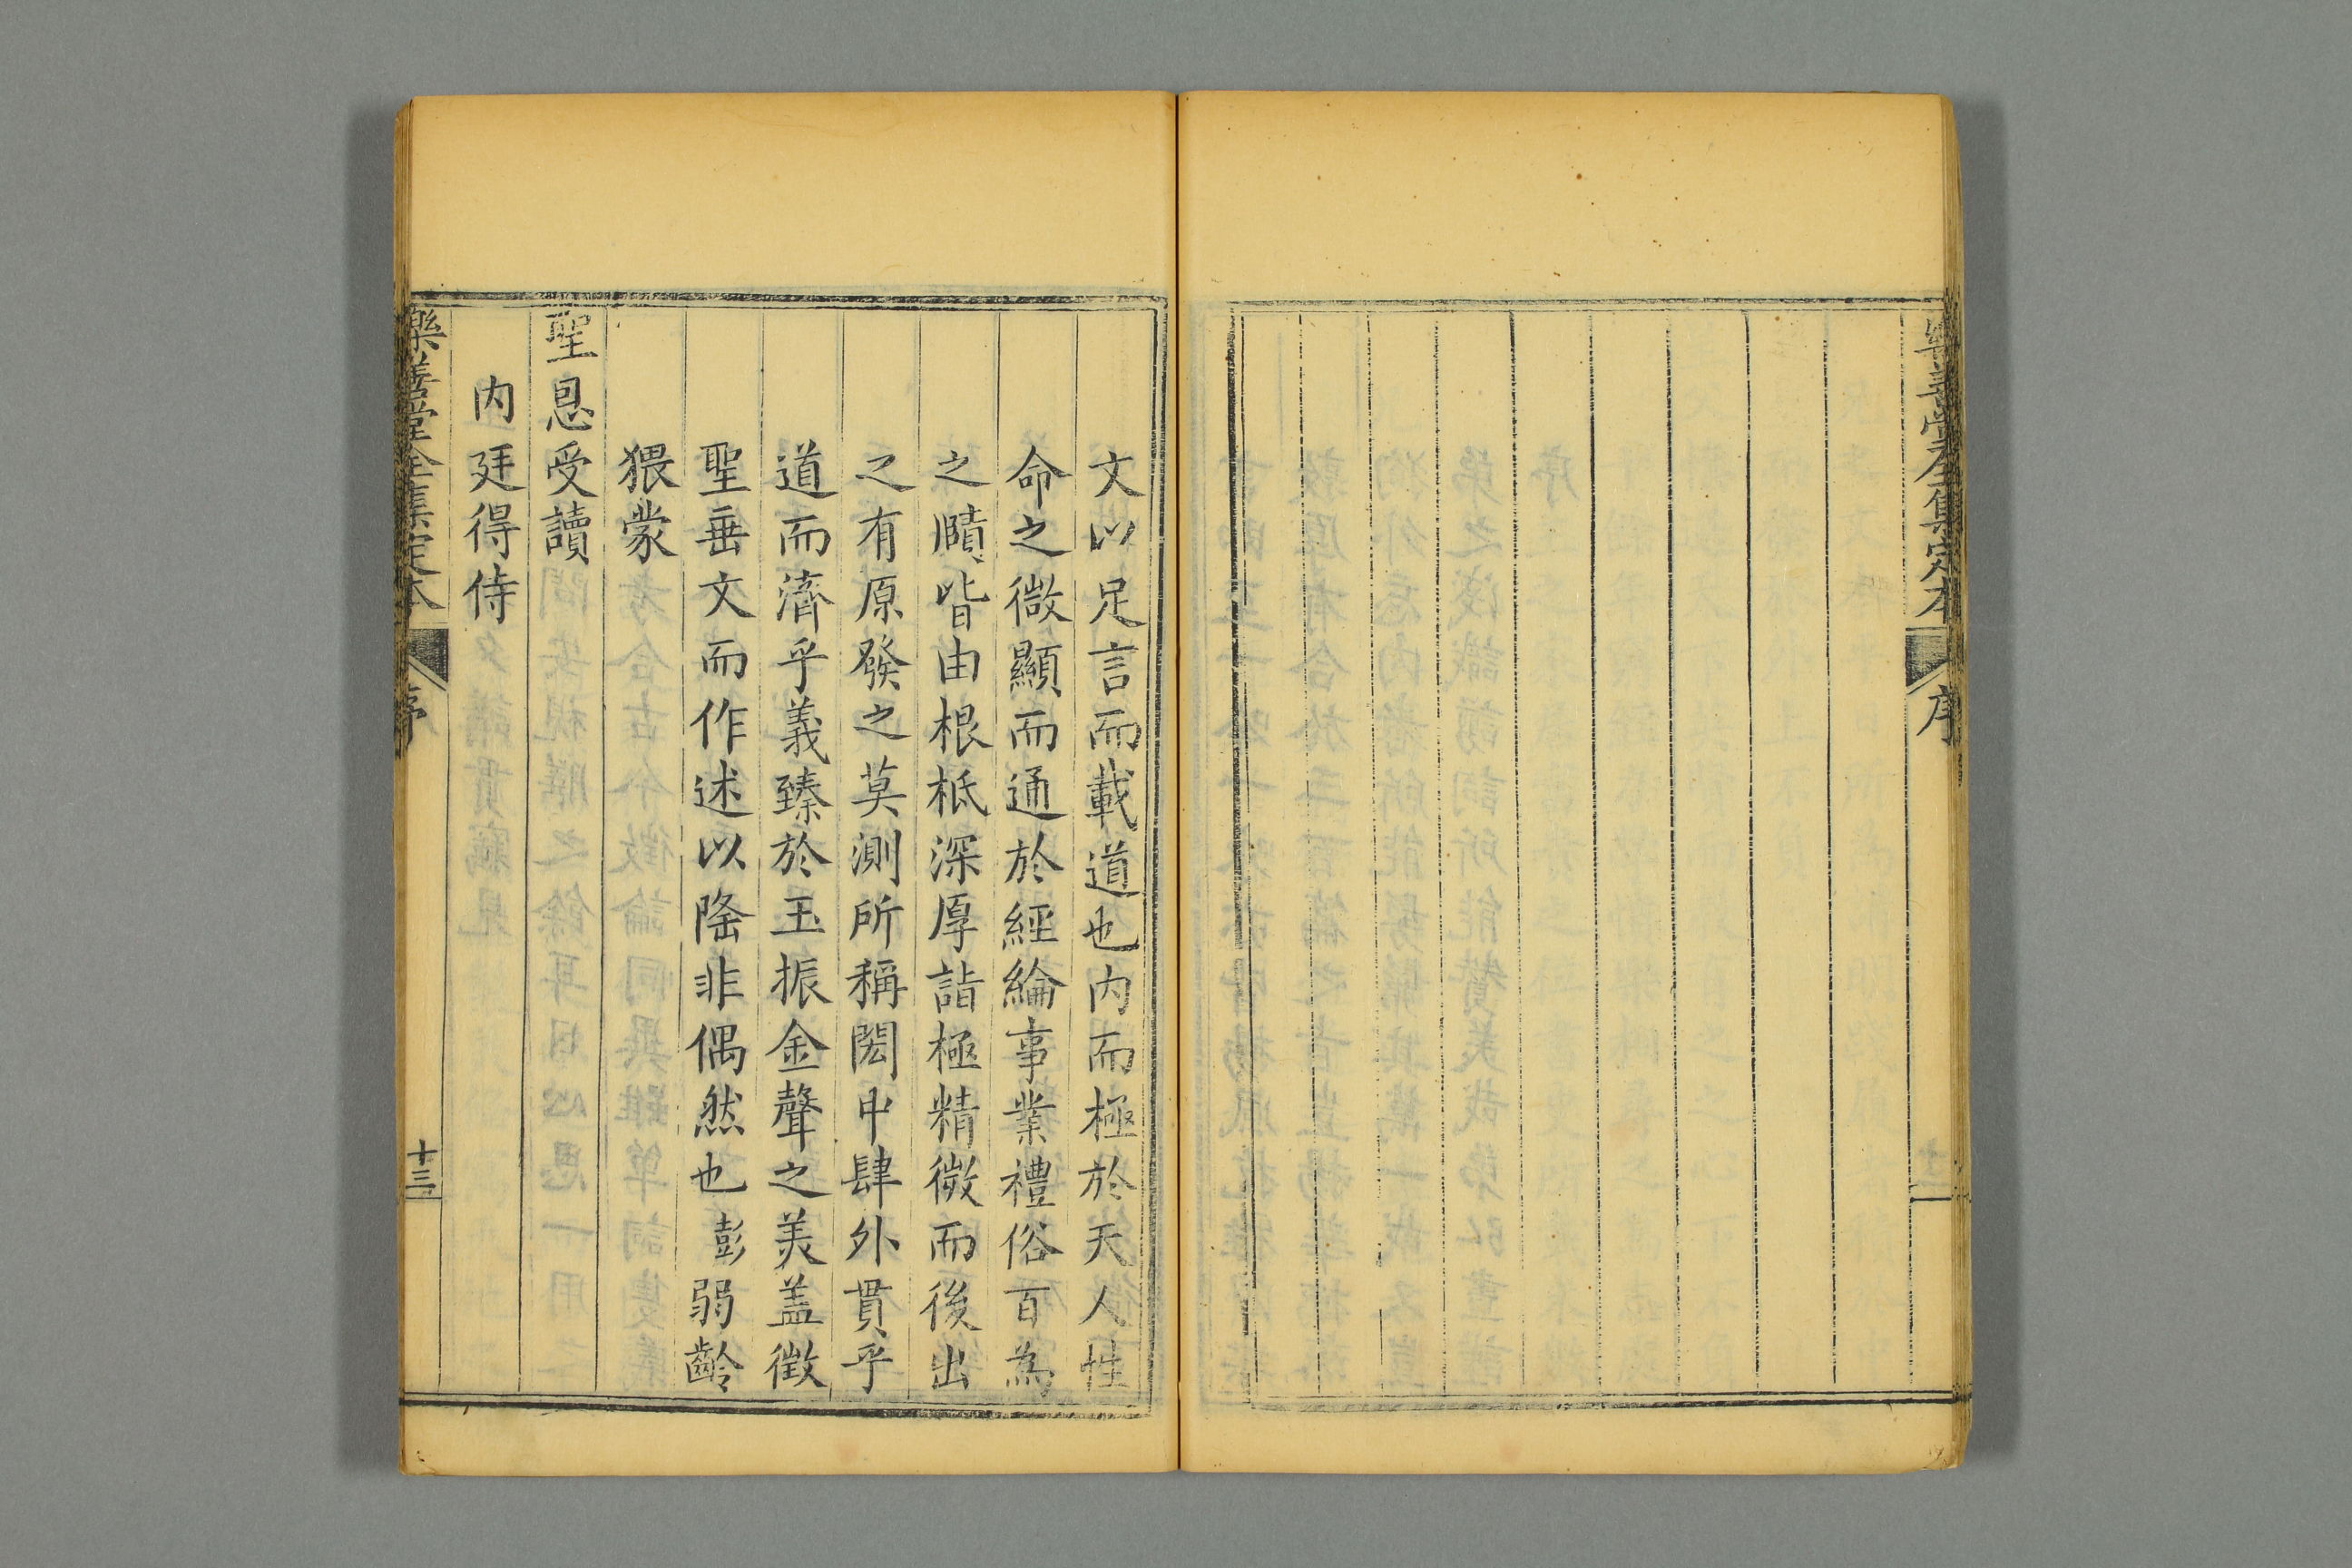 樂善堂全集定本
序
文以足言而載道也内而極於天人性
命之微顯而通於經綸事業禮俗百為
之賾皆由根柢深厚詣極精微而後出
之有原發之莫測所稱閎中肆外貫乎
道而濟乎義臻於玉振金聲之美盖徵
聖垂文而作述以隆非偶然也彭弱齡
猥蒙
聖恩受讀
内廷得侍
樂善堂全集定本
序
十三